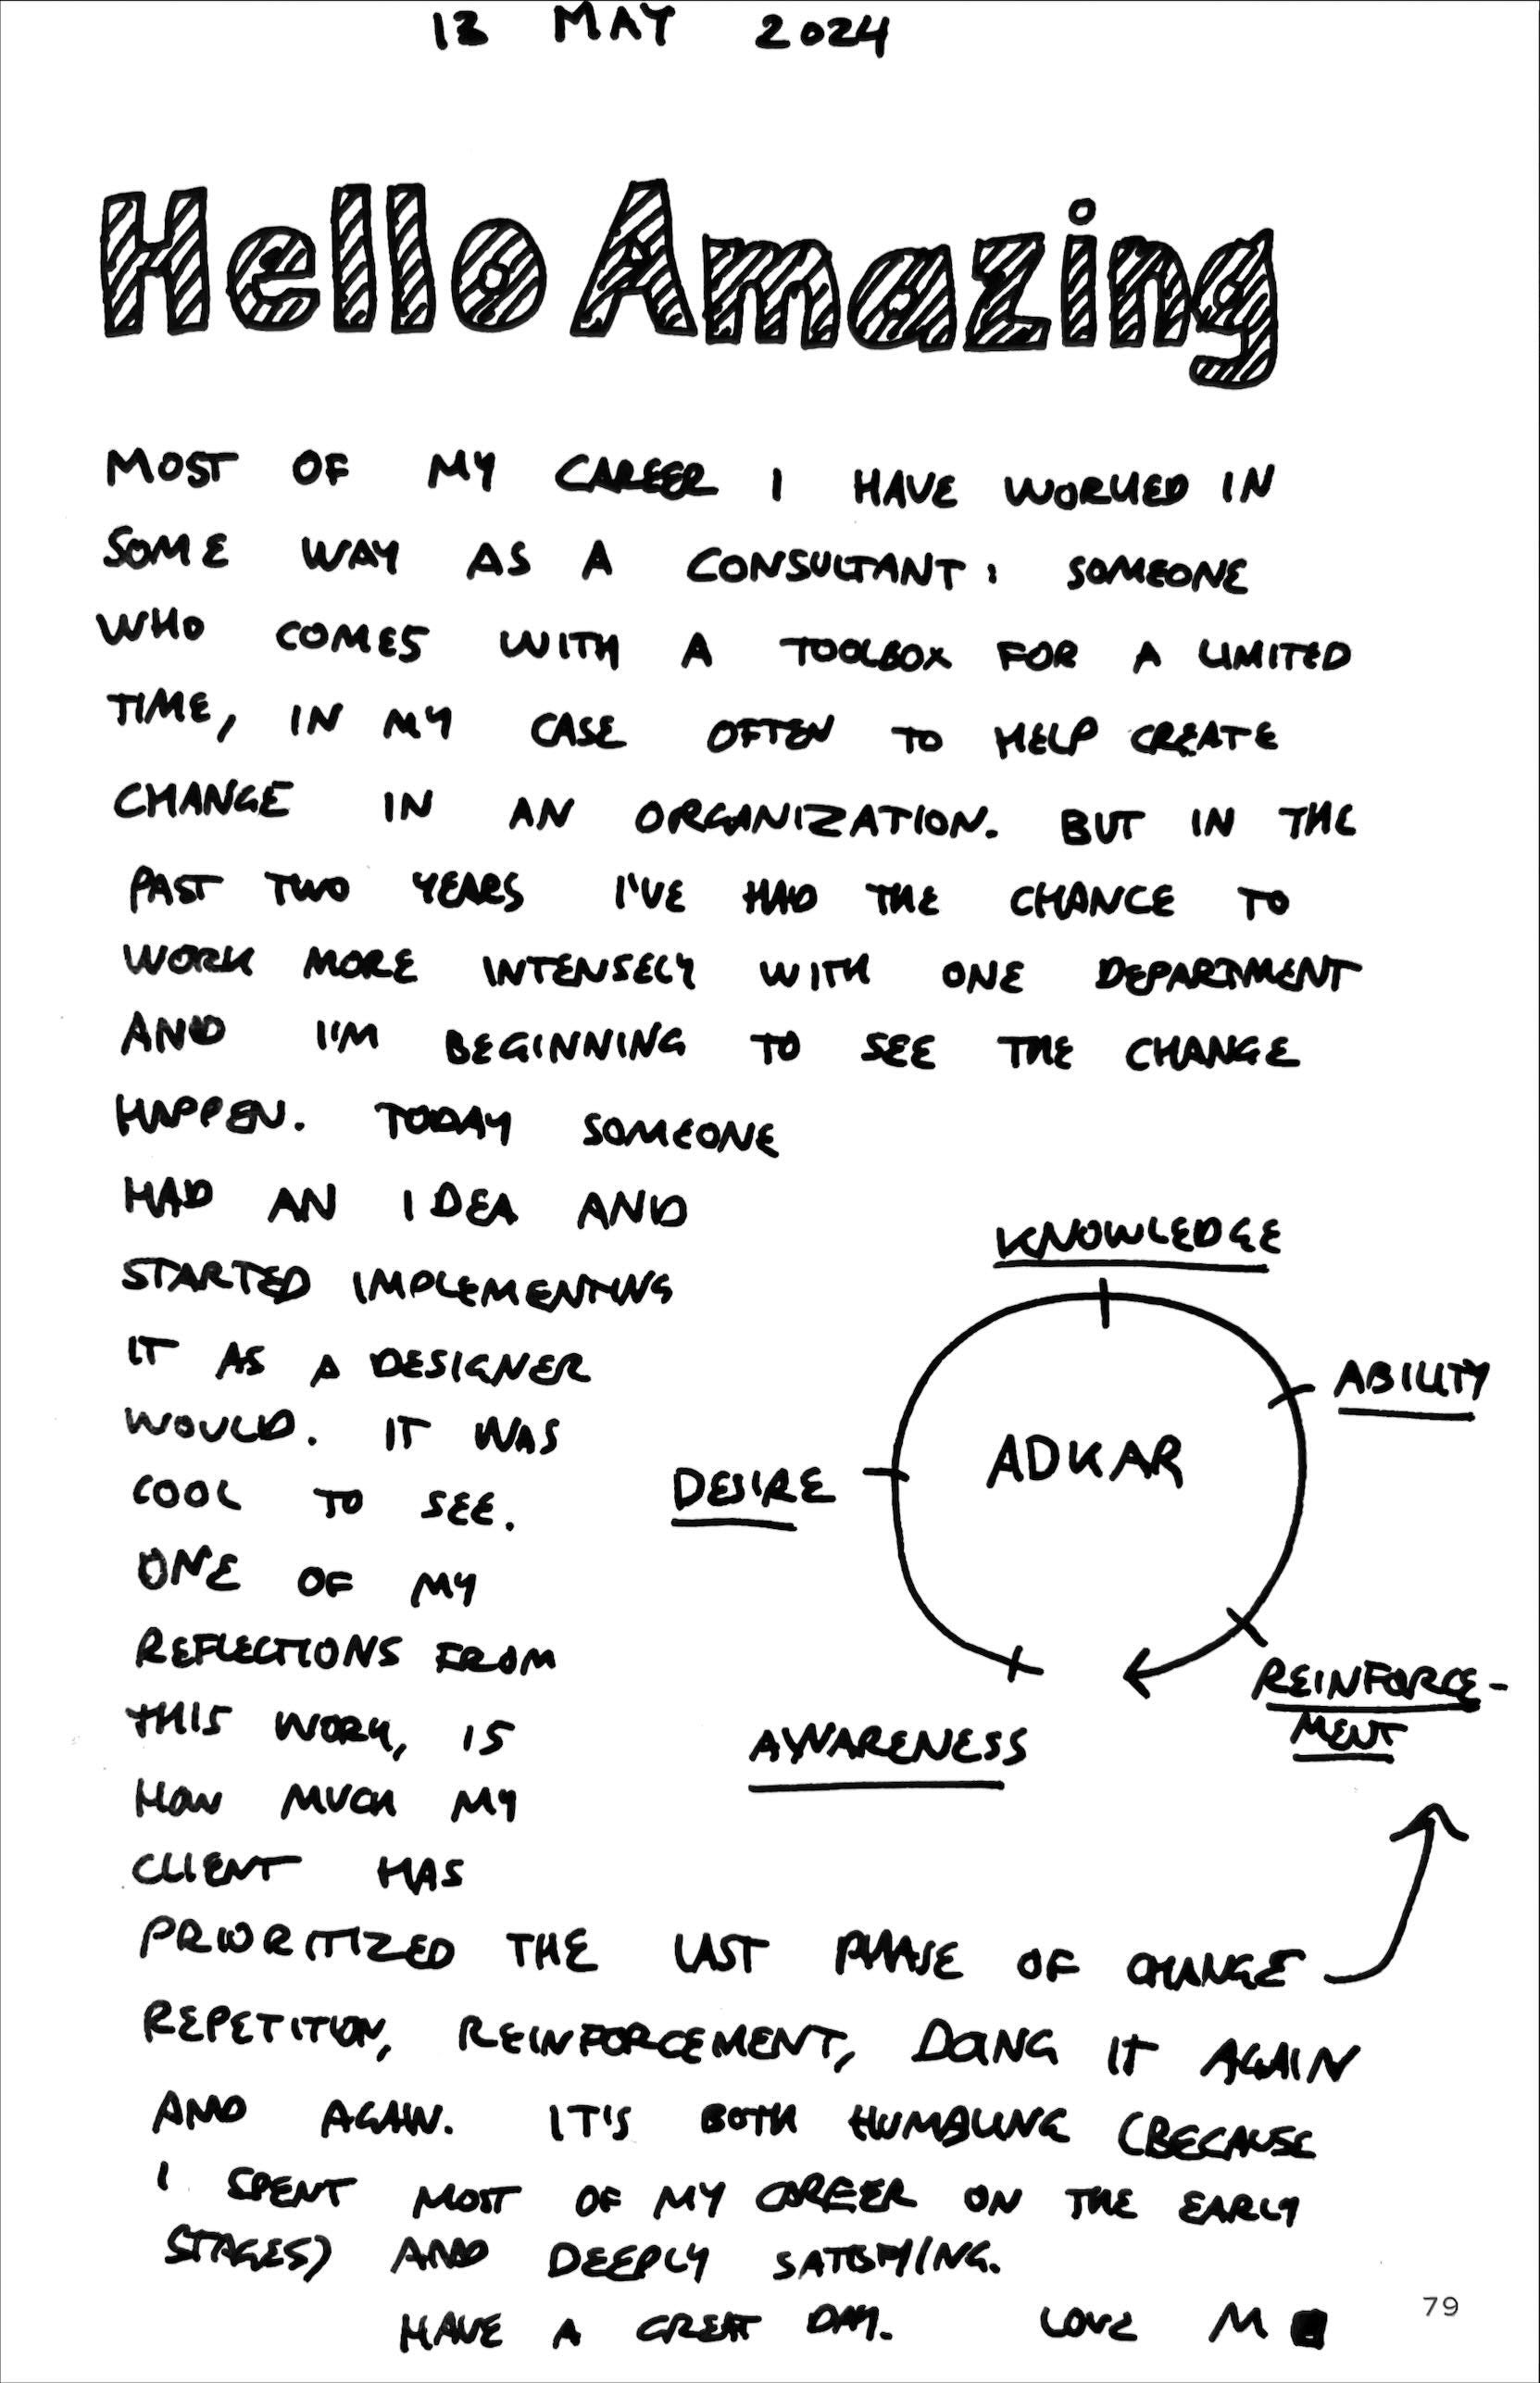 13 MAY 2024
Hello Amazing
MOST OF MY CAREER I HAVE WORKED IN
SOME WAY AS A CONSULTANT: SOMEONE
WHO COMES WITH A TOOLBOX FOR A LIMITED
TIME, IN MY CASE OFTEN TO HELP CREATE
CHANGE IN AN ORGANIZATION. BUT IN THE
PAST TWO YEARS I'VE HAD THE CHANCE TO
WORK MORE INTENSELY WITH ONE DEPARTMENT
AND I'M BEGINNING TO SEE THE CHANGE
HAPPEN. TODAY SOMEONE
HAD AN IDEA AND
STARTED IMPLEMENTING
IT AS A DESIGNER
WOULD. IT WAS
COOL TO SEE.
ONE OF MY
REFLECTIONS FROM
THIS WORK, IS
HOW MUCH MY
CLIENT HAS
PRIORITIZED THE LAST PHASE OF CHANGE
REPETITION, REINFORCEMENT, DOING IT AGAIN
AND AGAIN. IT'S BOTH HUMBLING (BECAUSE
I SPENT MOST OF MY CAREER ON THE EARLY
STAGES) AND DEEPLY SATISFYING.
HAVE A GREAT DAY. LOVE M
KNOWLEDGE
ABILITY
ADKAR
DESIRE
REINFORCE-
MENT
AWARENESS
79